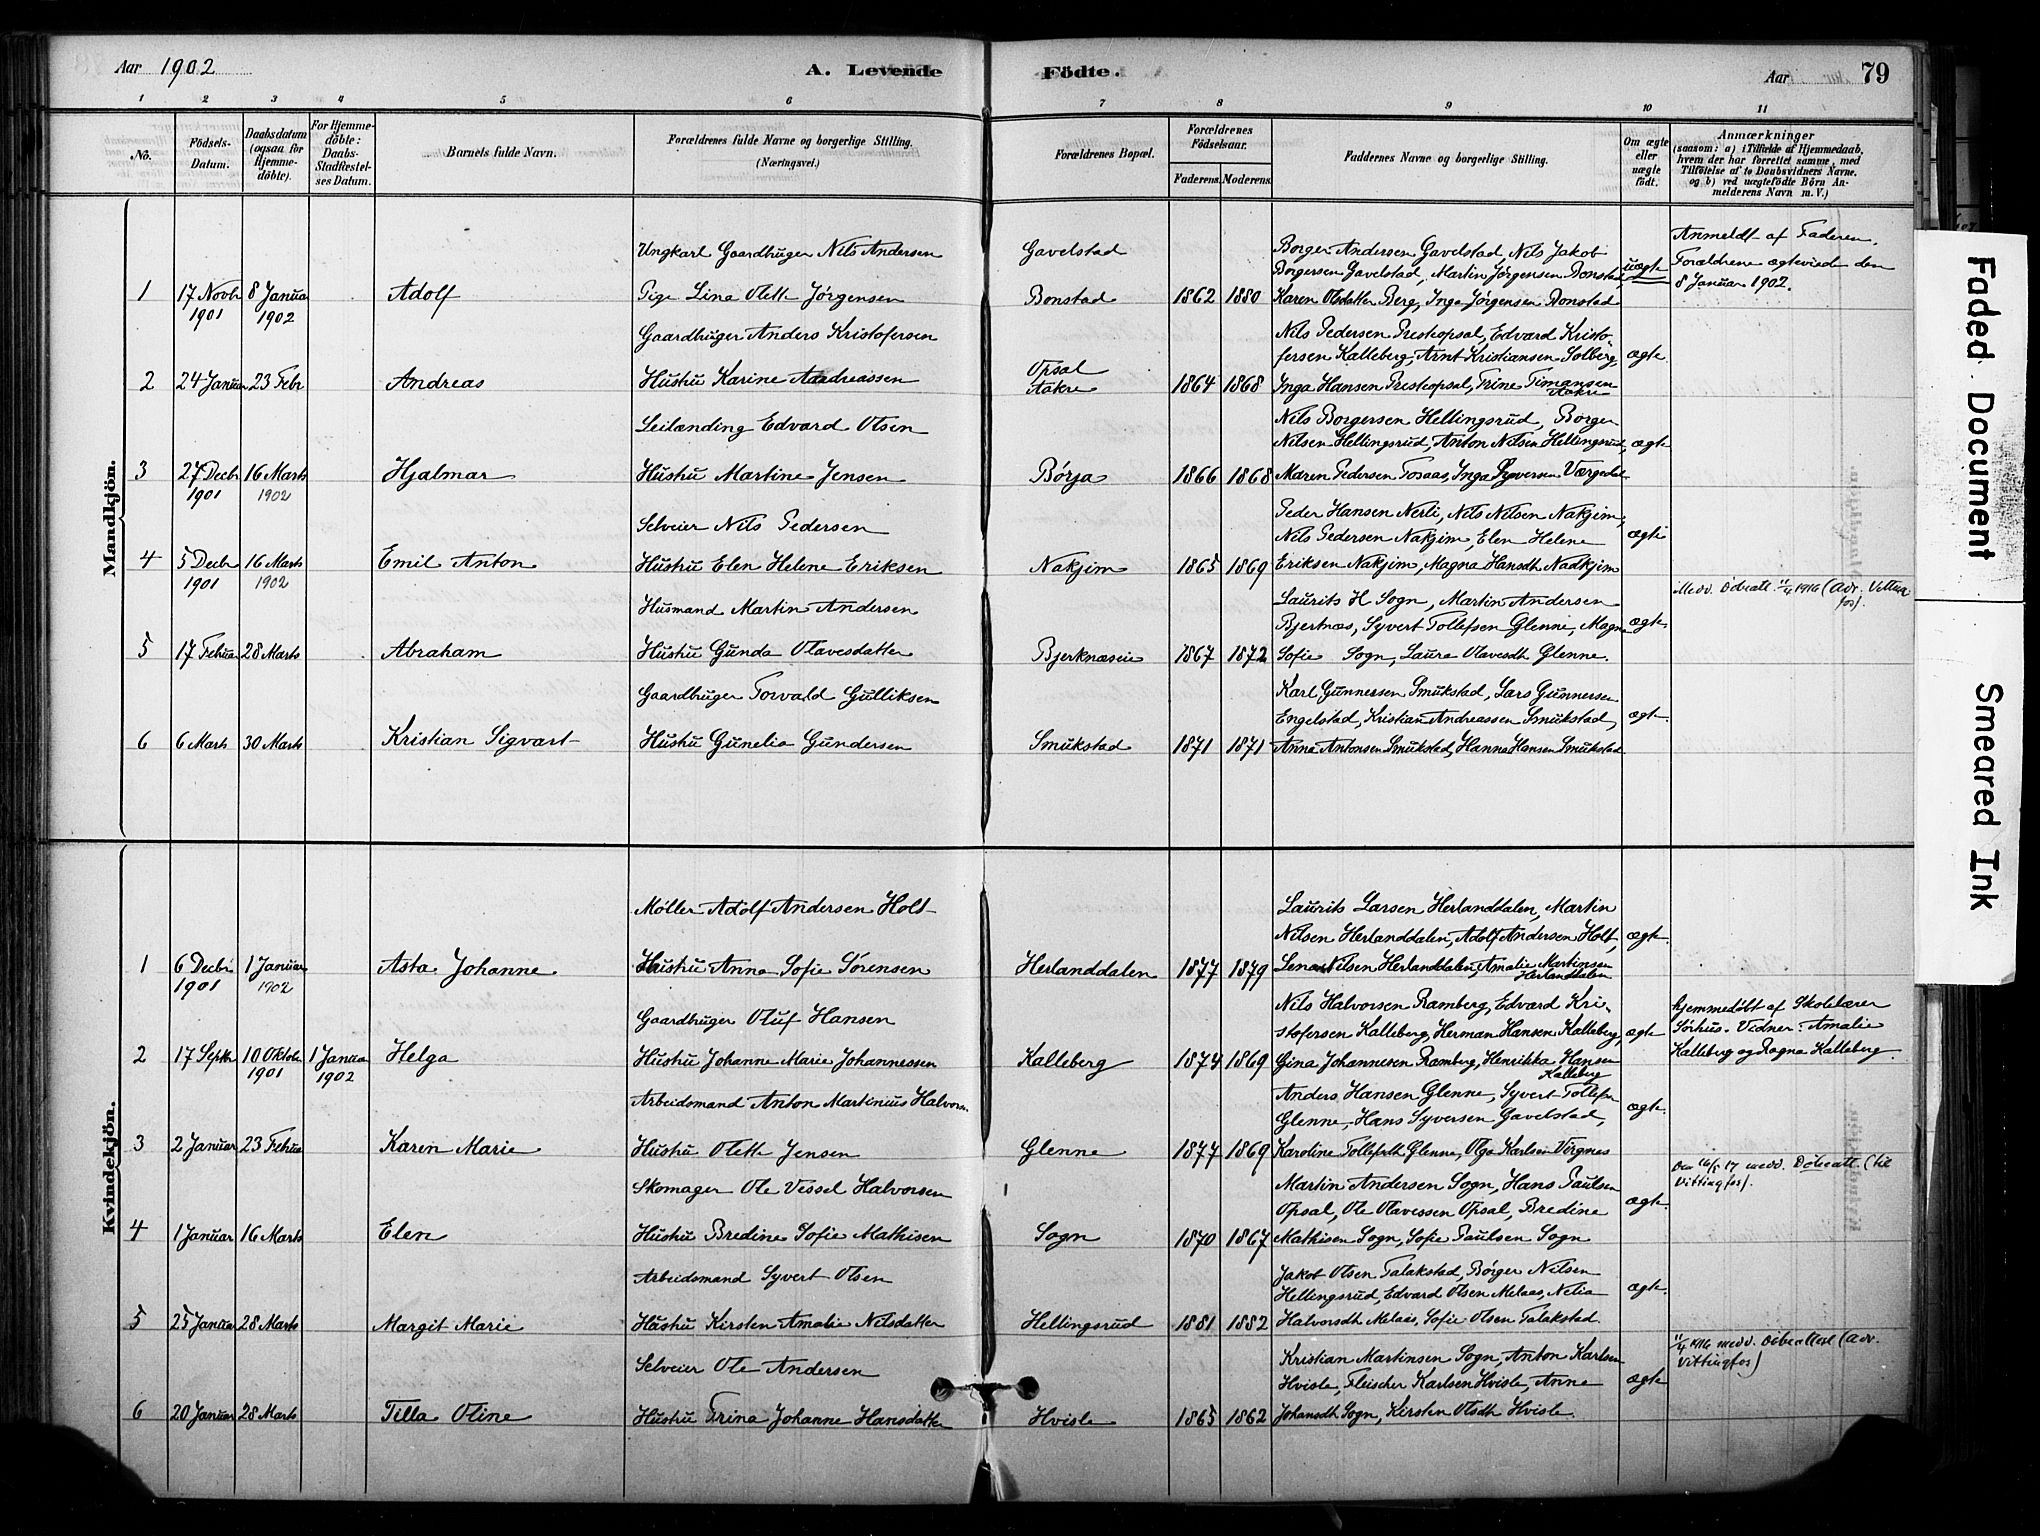 Aar 1902
A. Levende Födte.
Aar 79
1 2 3 4 5 6 7 8 9 10 11
No.
Födsels-Datum.
Daabsdatum (ogsaa for Hjemme-döbte).
For Hjemme-döbte: Daabs-Stadfæstel-ses Datum.
Barnets fulde Navn.
Forældrenes fulde Navne og borgerlige Stilling. (Næringsvei.)
Forældrenes Bopæl.
Forældrenes Födselsaar.
Faderens. Moderens.
Faddernes Navne og borgerlige Stilling.
Om ægte eller uægte födt.
Anmærkninger
(saasom: a) i Tilfælde af Hjemmedaab,
hvem der har forrettet samme, med
Tilföielse af to Daabsvidners Navne.
og b) ved uægtefödte Börn An-
melderens Navn m. V.)
Mandkjön.
Ungkarl Gaardbruger Nils Andersen
Gavelstad
Borger Andersen Gavelstad, Nils Jakob
Borgersen Gavelstad, Martin Jørgensen Bonstad,
uægte
Anmeldt af Faderen.
Forældrene ægteviede den
8 Januar 1902.
1 17 Novbr 1901 8 Januar 1902 Adolf
Pige Lina Olette Jørgensen
Bonstad 1862 1880
Karen Olsdatter Berg, Inga Jørgensen Bonstad
Gaardbruger Anders Kristofersen
Nils Pedersen Presteopsal, Edvard Kristo-
fersen Kalleberg, Arnt Kristiansen Solberg,
ægte
2 24 Januar 23 Febr Andreas
Hustru Karine Andreassen
Opsal
Aakre 1864 1868
Inga Hansen Presteopsal, Trine Timansen
Aakre
Leilænding Edvard Olsen
Nils Borgersen Hellingsrud, Borger
Nilsen Hellingsrud, Anton Nilsen Hellingsrud,
ægte
3 27 Decbr 1901 16 Marts 1902 Hjalmar
Hustru Martine Jensen
Børja 1866 1868
Maren Pedersen Fosaas, Inga Syversen Værgedal
Selveier Nils Pedersen
Peder Hansen Nerli, Nils Nilsen Nakjim,
Nils Pedersen Nakjim, Elen Helene
ægte
4 5 Decbr 1901 16 Marts 1902 Emil Anton
Hustru Elen Helene Eriksen
Nakjim 1865 1869
Eriksen Nakjim, Magna Hansdh Nadkjim
Medd. Døbeatt. 11/4 1916 (Adr. Vittingfos).
Husmand Martin Andersen
Laurits H Sogn, Martin Andersen
Bjertnæs, Syvert Tollefsen Glenne, Magna
ægte
5 17 Februar 28 Marts Abraham
Hustru Gunda Olavesdatter
Bjerknæseie 1867 1872
Sofie Sogn, Laura Olavesdh Glenne.
Gaardbruger Torvald Gulliksen
Karl Gunnersen Smukstad, Lars Gunnersen
Engelstad, Kristian Andreassen Smukstad,
ægte
6 6 Marts 30 Marts Kristian Sigvart
Hustru Gunelia Gundersen
Smukstad 1871 1871
Anna Antonsen Smukstad, Hanna Hansen Smukstad
Kvindekjön.
Møller Adolf Andersen Holt
Laurits Larsen Herlanddalen, Martin
Nilsen Herlanddalen, Adolf Andersen Holt,
ægte
1 6 Decbr 1901 1 Januar 1902 Asta Johanne
Hustru Anna Sofie Sørensen
Herlanddalen 1877 1879
Lena Nilsen Herlanddalen, Amalie Martinsen
Herlanddalen
Gaardbruger Oluf Hansen
Nils Halvorsen Ramberg, Edvard Kri-
stofersen Kalleberg, Herman Hansen Kalleberg,
ægte
hjemmedøbt af Skolelærer
Sørhus. Vidner: Amalie
Kalleberg og Ragna Kalleberg.
2 17 Septbr 10 Oktobr 1901 1 Januar 1902 Helga
Hustru Johanne Marie Johannessen
Kalleberg 1874 1869
Gina Johannesen Ramberg, Henrikka Hansen
Kalleberg
Arbeidsmand Anton Martinius Halvorsen
Anders Hansen Glenne, Syvert Tollefsen
Glenne, Hans Syversen Gavelstad,
ægte
3 2 Januar 23 Februar Karen Marie
Hustru Olette Jensen
Glenne 1877 1869
Karoline Tollefsdt Glenne, Olga Karlsen Vørgnes
Den 16/5 17 medd. Døbeatt. (til
Vittingfos).
Skomager Ole Vessel Halvorsen
Martin Andersen Sogn, Hans Paulsen
Opsal, Ole Olavessen Opsal, Bredine
ægte
4 1 Januar 16 Marts Elen
Hustru Bredine Sofie Mathisen
Sogn 1870 1867
Mathisen Sogn, Sofie Paulsen Sogn
Arbeidsmand Syvert Olsen
Jakob Olsen Talakstad, Børger Nilsen
Hellingsrud, Edvard Olsen Melaas, Nelia
ægte
5 25 Januar 28 Marts Margit Marie
Hustru Kirsten Amalie Nilsdatter
Hellingsrud 1881 1882
Halvorsdh Melaas, Sofie Olsen Talakstad.
11/4 1916 medd. Døbeattest (Adr.
Vittingfos)
Selveier Ole Andersen
Kristian Martinsen Sogn, Anton Karlsen
Hvisle, Fleischer Karlsen Hvisle, Anne
ægte
6 20 Januar 28 Marts Tilla Oline
Hustru Trina Johanne Hansdatter
Hvisle 1865 1862
Johansdh Sogn, Kirsten Olsdh Hvisle.
Faded Document
Smeared Ink